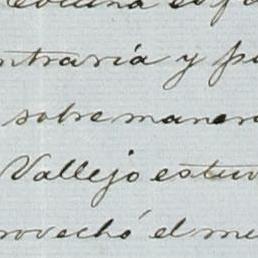 ntraría y p
sobre maner
Vallejo estuv
rovechó el me